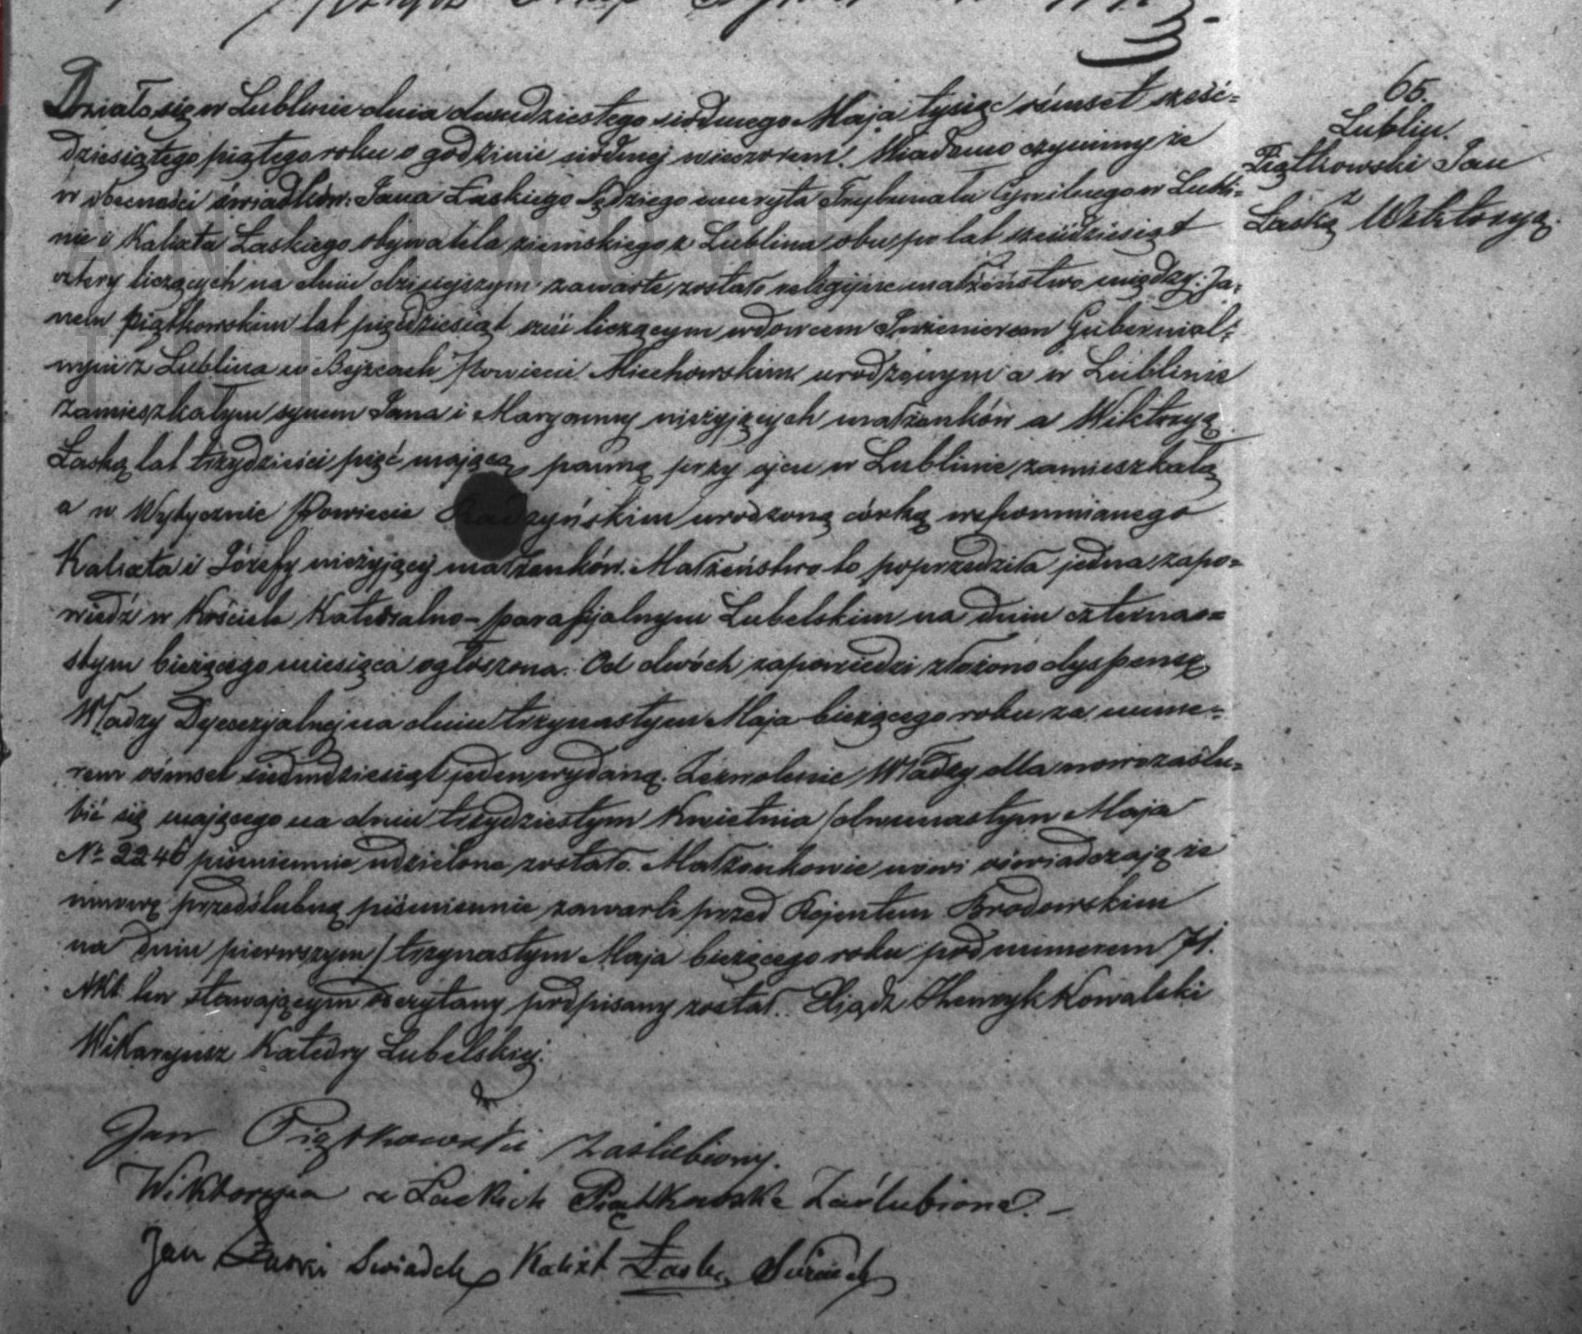 65.
Lublin.
Piątkowski Jan
z
Łaską Wiktoryą.
Działo się w Lublinie dnia dwudziestego siódmego Maja tysiąc ośmset sześć=
dziesiątego piątego roku o godzinie siódmej wieczorem. Wiadomo czynimy że
w obecności świadków: Jana Łaskiego Sędziego emeryta Trybunału Cywilnego w Lubli=
nie i Kalixta Łaskiego obywatela ziemskiego z Lublina obu po lat sześćdziesiąt
cztery liczących na dniu dzisiejszym zawarte zostało religijne małżeństwo między: Ja=
nem Piątkowskim lat pięćdziesiąt sześć liczącym wdowcem Inżenierem Gubernial=
nym z Lublina w Bejscach Powiecie Miechowskim urodzonym a w Lublinie
zamieszkałym synem Jana i Maryanny nieżyjących małżonków a Wiktoryą
Łaską lat trzydzieści pięć mającą, panną przy ojcu w Lublinie zamieszkałą
a w Wytycznie Powiecie Radzyńskim urodzoną córką wspomnianego
Kalixta i Józefy nieżyjącej małżonków. Małżeństwo to poprzedziła jedna zapo=
wiedź w Kościele Katedralno-parafijalnym Lubelskim na dniu czternas=
tym bieżącego miesiąca ogłoszona. Od dwóch zapowiedzi złożono dyspensę
Władzy Dyecezyalnej na dniu trzynastym Maja bieżącego roku za nume=
rem ośmset siedmdziesiąt jeden wydaną. Zezwolenie Władzy dla nowozaślu=
bić się mającego na dniu trzydziestym Kwietnia / dwunastym Maja
№ 2246 piśmiennie udzielone zostało. Małżonkowie nowi oświadczają że
umowę przedślubną piśmiennie zawarli przed Rejentem Brodowskim
na dniu pierwszym / trzynastym Maja bieżącego roku pod numerem 71.
Akt ten stawającym odczytany podpisany został. Xiądz Henryk Kowalski
Wikaryusz Katedry Lubelskiej.
Jan Piątkowski Zaślubiony.
Wiktorya z Łaskich Piątkowska Zaślubiona. –
Jan Łaski Świadek Kalixt Łaski Świadek